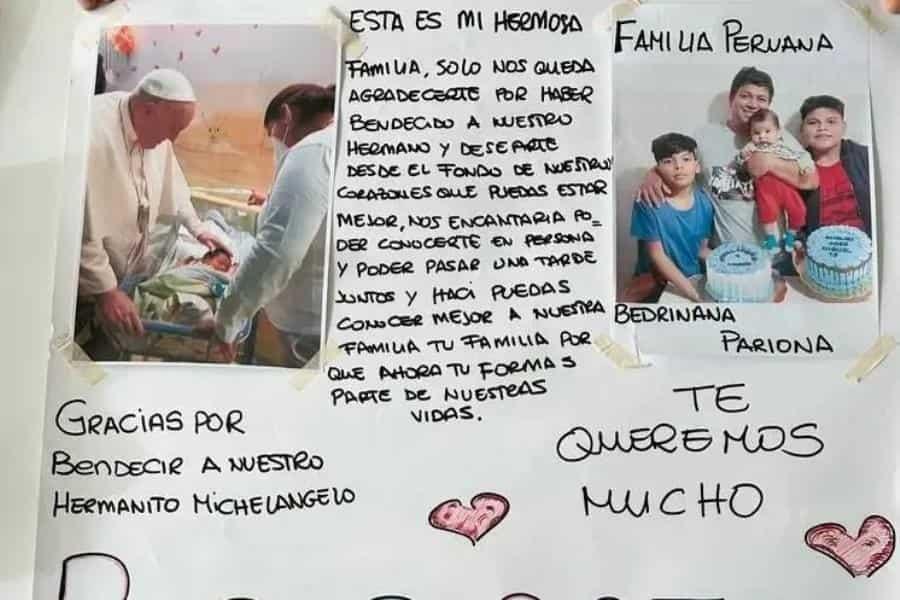 ESTA ES MI HERMOSA
FAMILIA, SOLO NOS QUEDA
AGRADECERTE POR HABER
BENDECIDO A NUESTRO
HERMANO Y DESEARTE
DESDE EL FONDO DE NUESTRO
CORAZONES QUE PUEDAS ESTAR
MEJOR, NOS ENCANTARIA PO=
DER CONOCERTE EN PERSONA
Y PODER PASAR UNA TARDE
JUNTOS Y HACI PUEDAS
CONOCER MEJOR A NUESTRA
FAMILIA TU FAMILIA POR
QUE AHORA TU FORMAS
PARTE DE NUESTRAS
VIDAS.
FAMILIA PERUANA
BEDRINANA
PARIONA
GRACIAS POR
BENDECIR A NUESTRO
HERMANITO MICHELANGELO
TE
QUEREMOS
MUCHO